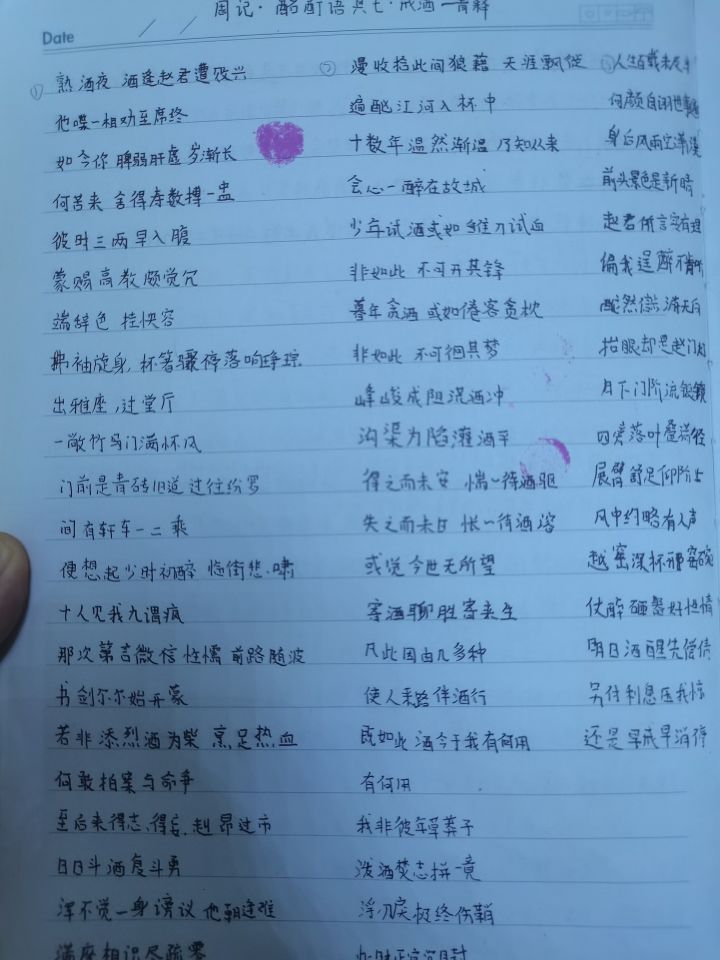 周记·酩酊语其七·戒酒一背释
Date
①
熟酒夜 酒逢赵君遭毁兴
他喋一相劝至席终
如今你 脾弱肝虚 岁渐长
何苦来 舍得寿数搏一盅
彼时三两早入腹
蒙赐高教颇觉冗
端辞色 挂怏容
拂袖旋身，杯箸骤停落响琤琮
出雅座，过堂厅
一敞竹马门满怀风
门前是青砖旧道 过往纷
间有轩车一二乘
便想起少时初醉 临街悲·啸
十人见我九谓疯
那次第言微信性懦 前路随波
书剑尔尔始开蒙
若非 添烈酒为柴 烹足热血
何敢拍案与命争
至后来得志、得 赳昂过市
日日斗酒复斗勇
浑不觉一身谤议 他朝逢难
满座相识尽疏零
②
漫收拾此间狼藉 天涯飘
追酡江河入杯中
十数年温然渐温 乃知从来
会心一醉在故城
少年试酒或如 试血
非如此 不可开其锋
暮年贪酒或如倦客贪枕
非如此 不可徊其梦
峰峻成阻浇酒冲
沟渠为陷灌酒平
得之而未安 惴一待酒驱
失之而未甘 怅一待酒溶
或觉今世无所望
寄酒聊胜寄来生
凡此因由几多种
使人来路伴酒行
既如此 酒今于我有何用
有何用
我非彼年草莽子
泼酒焚志拼一竟
浮刀戾 极终伤鞘
③
人生百载未
何颜自诩
身后风雨
前头景色是新晴
赵君所言实有理
偏我逞醉不肯
酡然
抬眼却是赵门
月下门阶流银
四旁落叶叠
展臂舒足仰阶
风中约略有人声
越窑深杯邢窑碗
仗醉砸盏好性情
明日酒醒先偿债
另付利息压我惊
还是早戒早消停